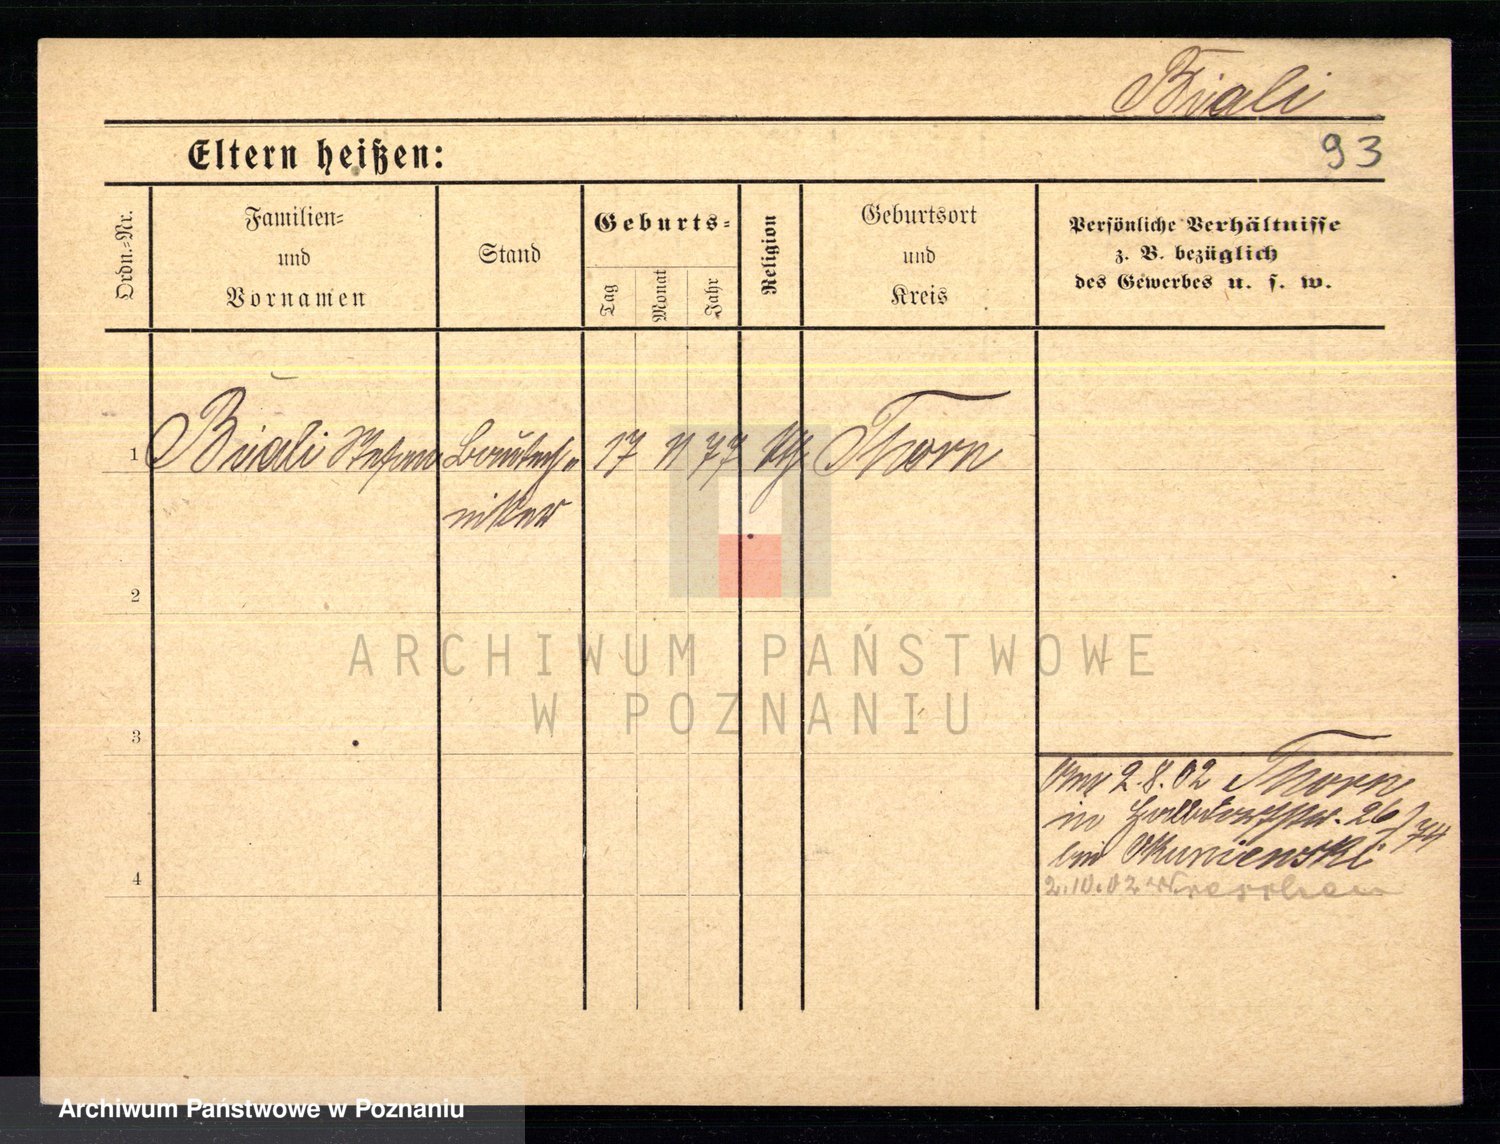 Biali
Eltern heißen:
93
Ordn.=Nr.
Familien=
und
Vornamen
Stand
Geburts=
Tag
Monat
Jahr
Religion
Geburtsort
und
Kreis
Persönliche Verhältnisse
z. B. bezüglich
des Gewerbes u. s. w.
1
Biali Stefan
Bautech=
niker
17
11
77
kth
Thorn
2
3
4
2.8.02 Thorn
in Halbdorfstr. 26/74
bei Okuniewski
2.10.02 Wreschen
ARCHIWUM PAŃSTWOWE
W POZNANIU
Archiwum Państwowe w Poznaniu